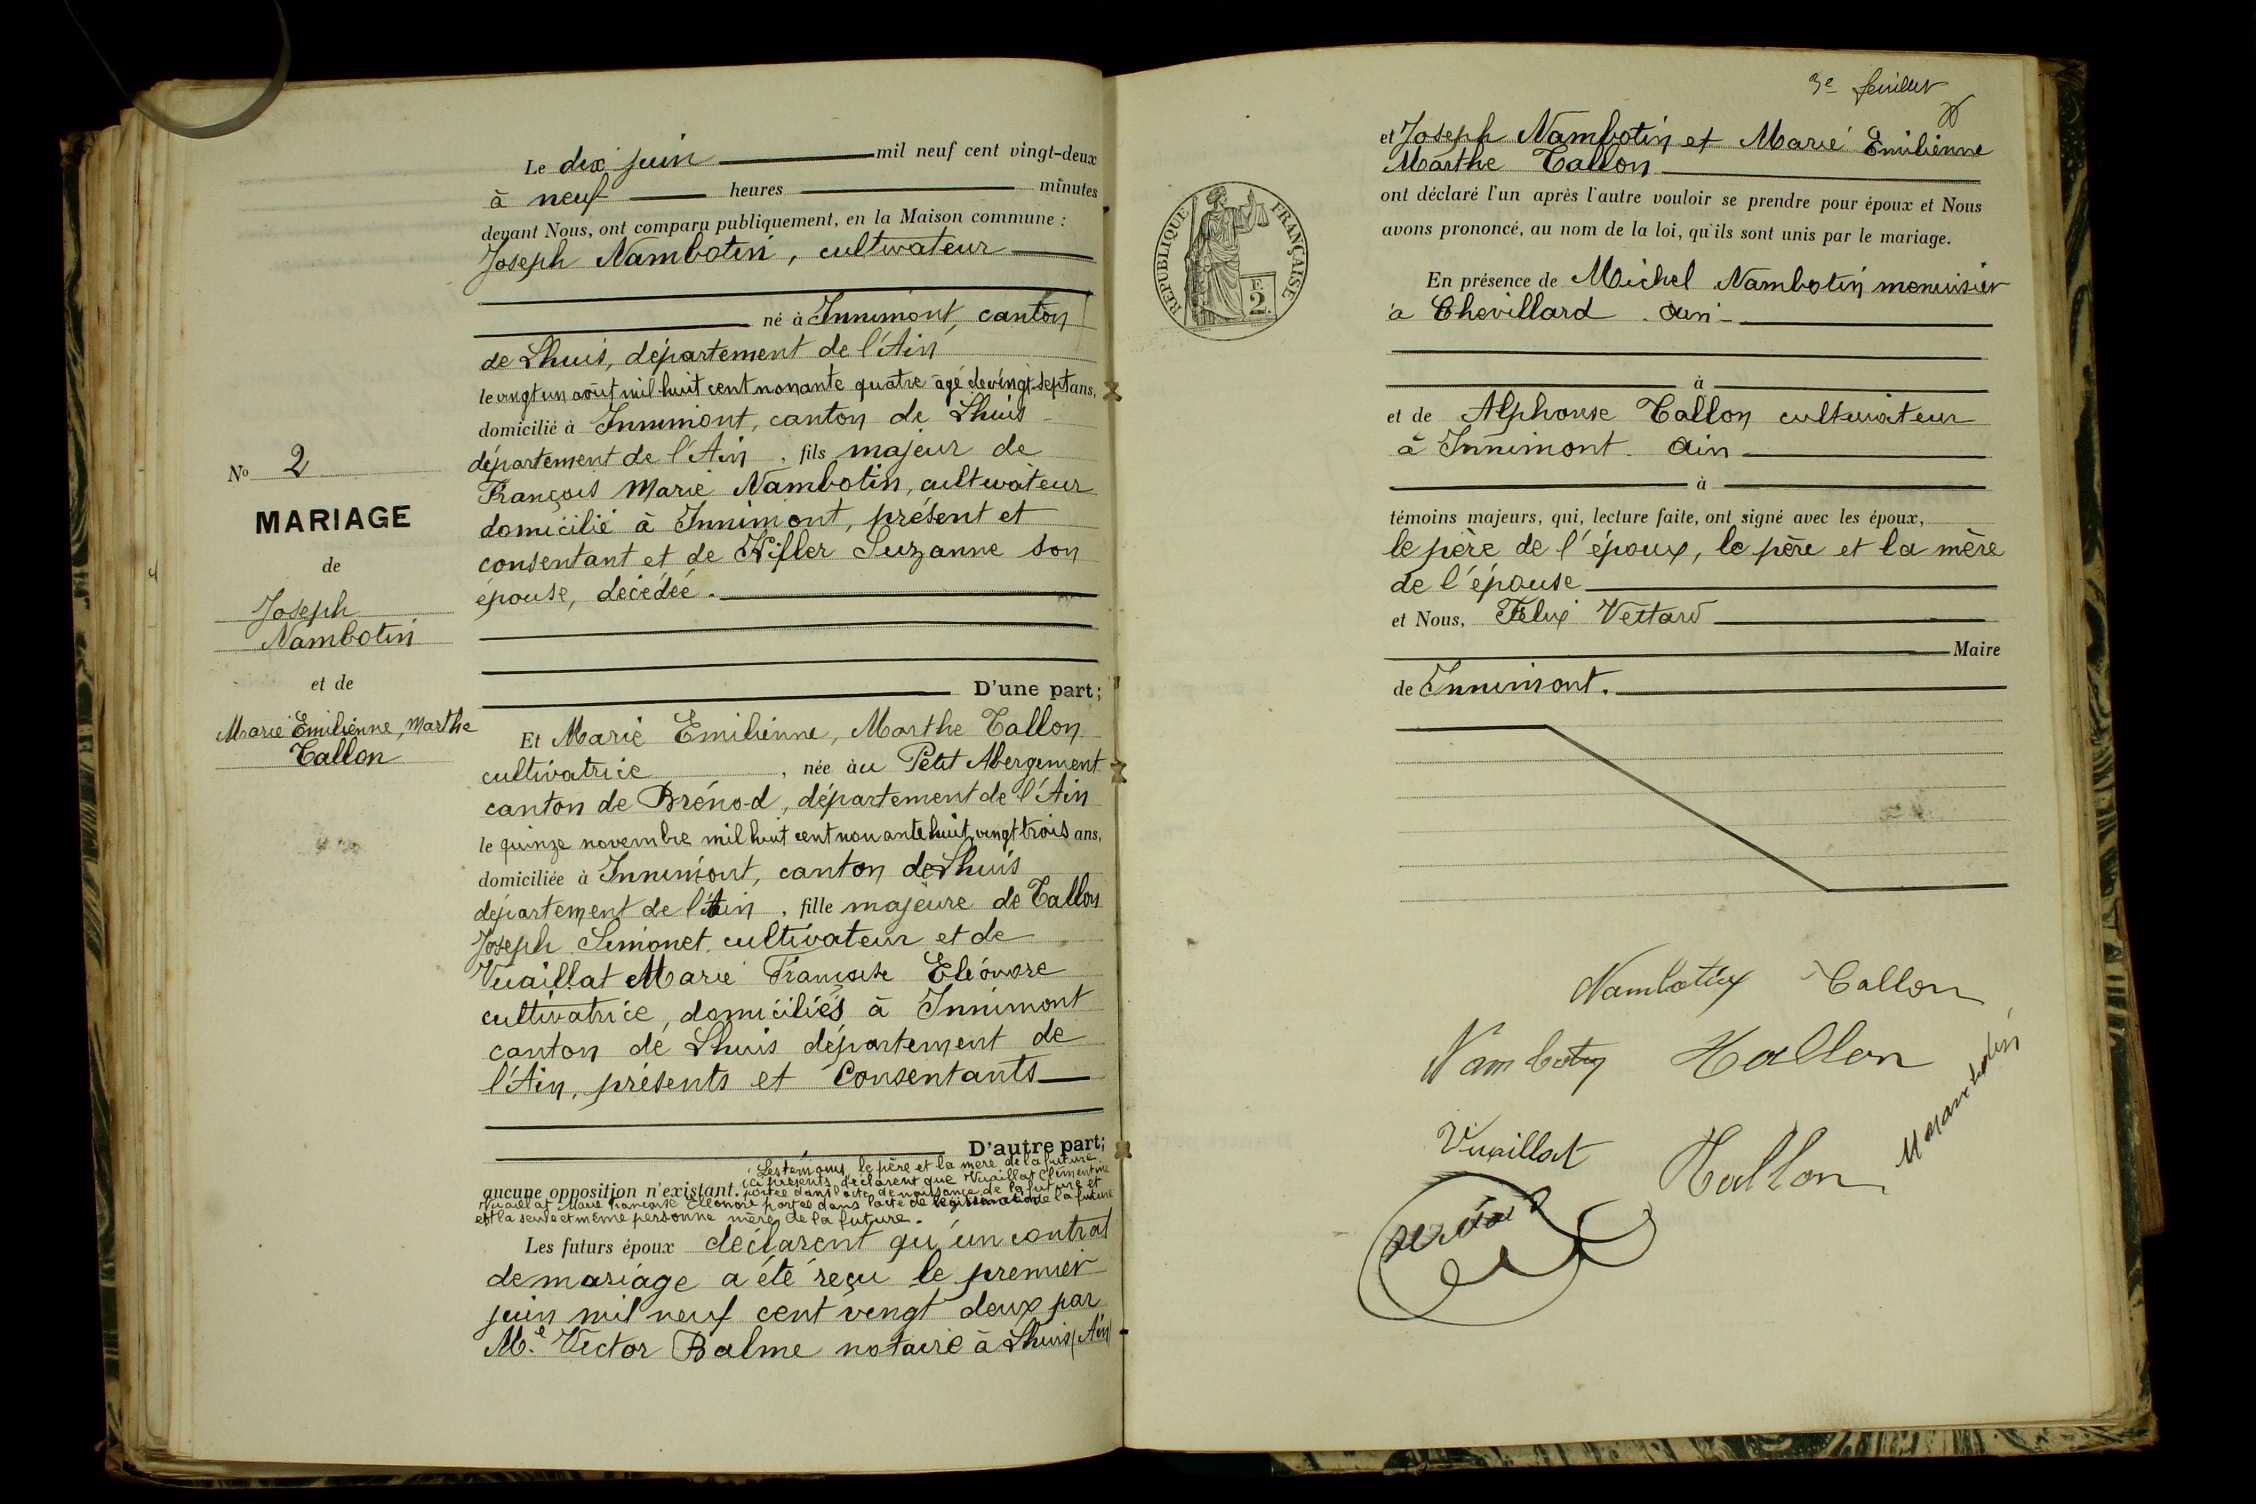 Le dix juin mil neuf cent vingt-deux
à neuf heures minutes
devant Nous, ont comparu publiquement, en la Maison commune :
Joseph Nambotin, cultivateur
né à Innimont, canton
de Lhuis, département de l'Ain
le vingt un août mil huit cent nonante quatre âgé de vingt-sept ans,
domicilié à Innimont, canton de Lhuis
département de l'Ain, fils majeur de
François Marie Nambotin, cultivateur
domicilié à Innimont, présent et
consentant et de Suzanne son
épouse, décédée.
D'une part;
No 2
MARIAGE
de
Joseph
Nambotin
et de
Marie Emilienne, Marthe
Tallon
Et Marie Emilienne, Marthe Tallon
cultivatrice, née àu Petit Abergement
canton de Brénod, département de l'Ain
le quinze novembre mil huit cent nonante huit, vingt trois ans,
domiciliée à Innimont, canton de Lhuis
département de l'Ain, fille majeure de Tallon
Joseph Simonet cultivateur et de
Vuaillat Marie Françoise Eléonore
cultivatrice, domiciliés à Innimont
canton de Lhuis département de
l'Ain, présents et Consentants
D'autre part;
Les témoins, le père et la mère de la future
ici présents déclarent que Vuaillat Clémentine
aucune opposition n'existant. portée dans l'acte de naissance de la future et
Vuaillat Marie Françoise Eléonore portée dans l'acte de légitimation de la future
est la seule et même personne mère de la future.
Les futurs époux déclarent qu'un contrat
de mariage a été reçu le premier
juin mil neuf cent vingt deux par
Me Victor Balme notaire à Lhuis (Ain)
3e feuillet
et Joseph Nambotin et Marie Emilienne
Marthe Tallon
ont déclaré l'un après l'autre vouloir se prendre pour époux et Nous
avons prononcé, au nom de la loi, qu'ils sont unis par le mariage.
RÉPUBLIQUE FRANÇAISE
F.
2.
En présence de Michel Nambotin menuisier
à Chevillard Ain
à
et de Alphonse Tallon cultivateur
à Innimont Ain
à
témoins majeurs, qui, lecture faite, ont signé avec les époux,
le père de l'époux, le père et la mère
de l'épouse
et Nous, Félix Vettard
Maire
de Innimont.
Nambotin Tallon
Nambotin Tallon
Vuaillat Tallon